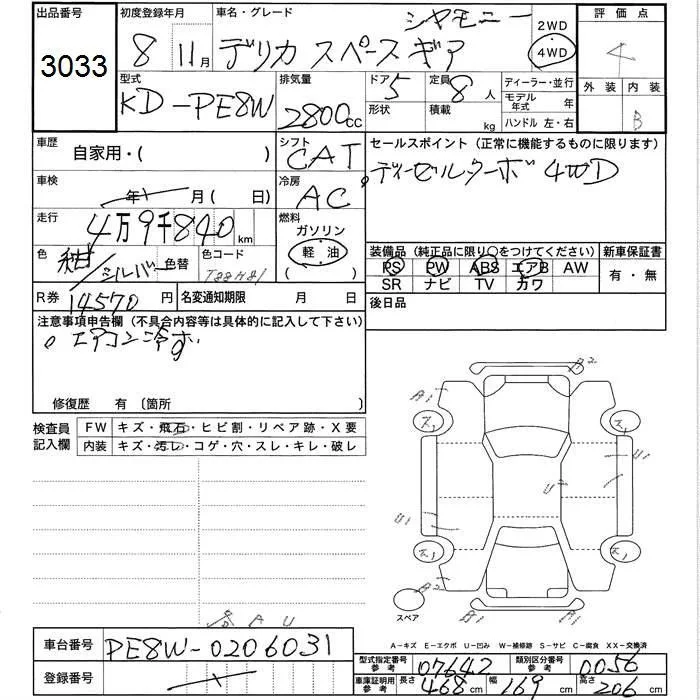 出品番号 初度登録年月 車名・グレード シャモニー 2WD 評価点
3033 8 11月 デリカ スペース ギア 4WD 4
型式 排気量 ドア 5 定員 8人 ディーラー・並行 外装 内装
KD-PE8W 2800cc 形状 積載 kg モデル年式 年 B
ハンドル 左・右
車歴 自家用・( ) シフト CAT セールスポイント (正常に機能するものに限ります)
車検 年 月 ( 日) 冷房 AC ディーゼルターボ 4WD
走行 4万9千840km 燃料 ガソリン
軽油
( )
色 紺/シルバー 色替 色コード T88H81 装備品 (純正品に限り○をつけてください) 新車保証書
PS PW ABS エアB AW 有・無
SR ナビ TV カワ
R券 14570円 名変通知期限 月 日 後日品
注意事項申告欄 (不具合内容等は具体的に記入して下さい)
修復歴 有 〔箇所 〕
検査員記入欄 FW キズ・飛石・ヒビ割・リペア跡・X要
内装 キズ・汚レ・コゲ・穴・スレ・キレ・破レ
A2
A1
A1
U1
U2
U1
B2
A2
スペア
A-キズ E-エクボ U-凹み W-補修跡 S-サビ C-腐食 XX-交換済
車台番号 PE8W-0206031 型式指定番号 参考 07642 類別区分番号 参考 0056
登録番号 車庫証明用 参考 長さ 468cm 幅 169cm 高さ 206cm